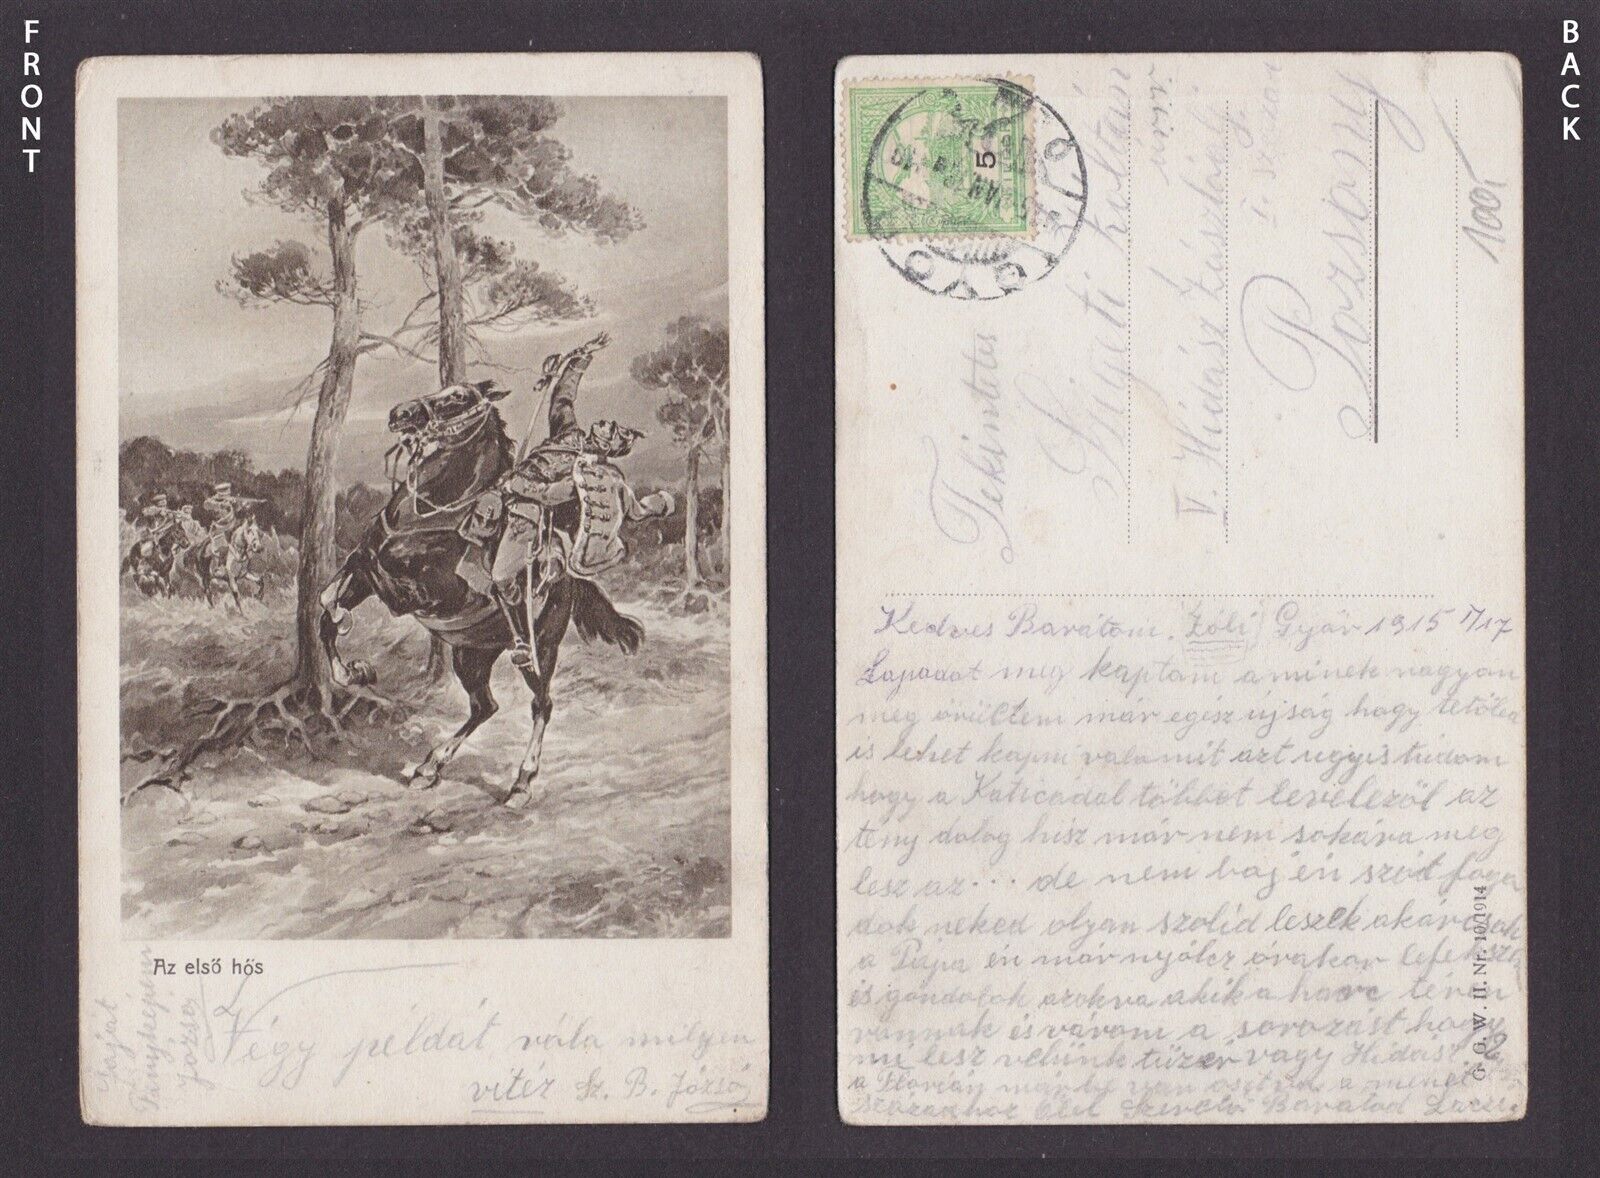 FRONT
BACK
Az első hős
Saját
Fényképem
József
Végy példát róla milyen
vitéz Sz. B. Józső
5
Tekintetes
Szigeti Zoltán
úrnak
V. Hidász Zászlóalj
1. század
Pozsony
1001
Kedves Barátom Zóli Győr 1915 I/17
Lapodat meg kaptam aminek nagyon
meg örültem már egész újság hogy tetőled
is lehet kapni valamit azt ugyis tudom
hogy a Katicádal többet levelezöl az
teny dolog hisz már nem sokára meg
lesz az... de nem baj én szót foga
dok neked olyan szolid leszek akárcsak
a Pápa én már nyólcz órakor lefekszem
is gondolok azokra akik a harc terén
vannak és várom a sorozást hogy
mi lesz velünk tüzér vagy Hidász
a Flórián már be van osztva a menet
századhoz Ölel Szerető Barátod
G. G. W. II. Nr. 10/1914